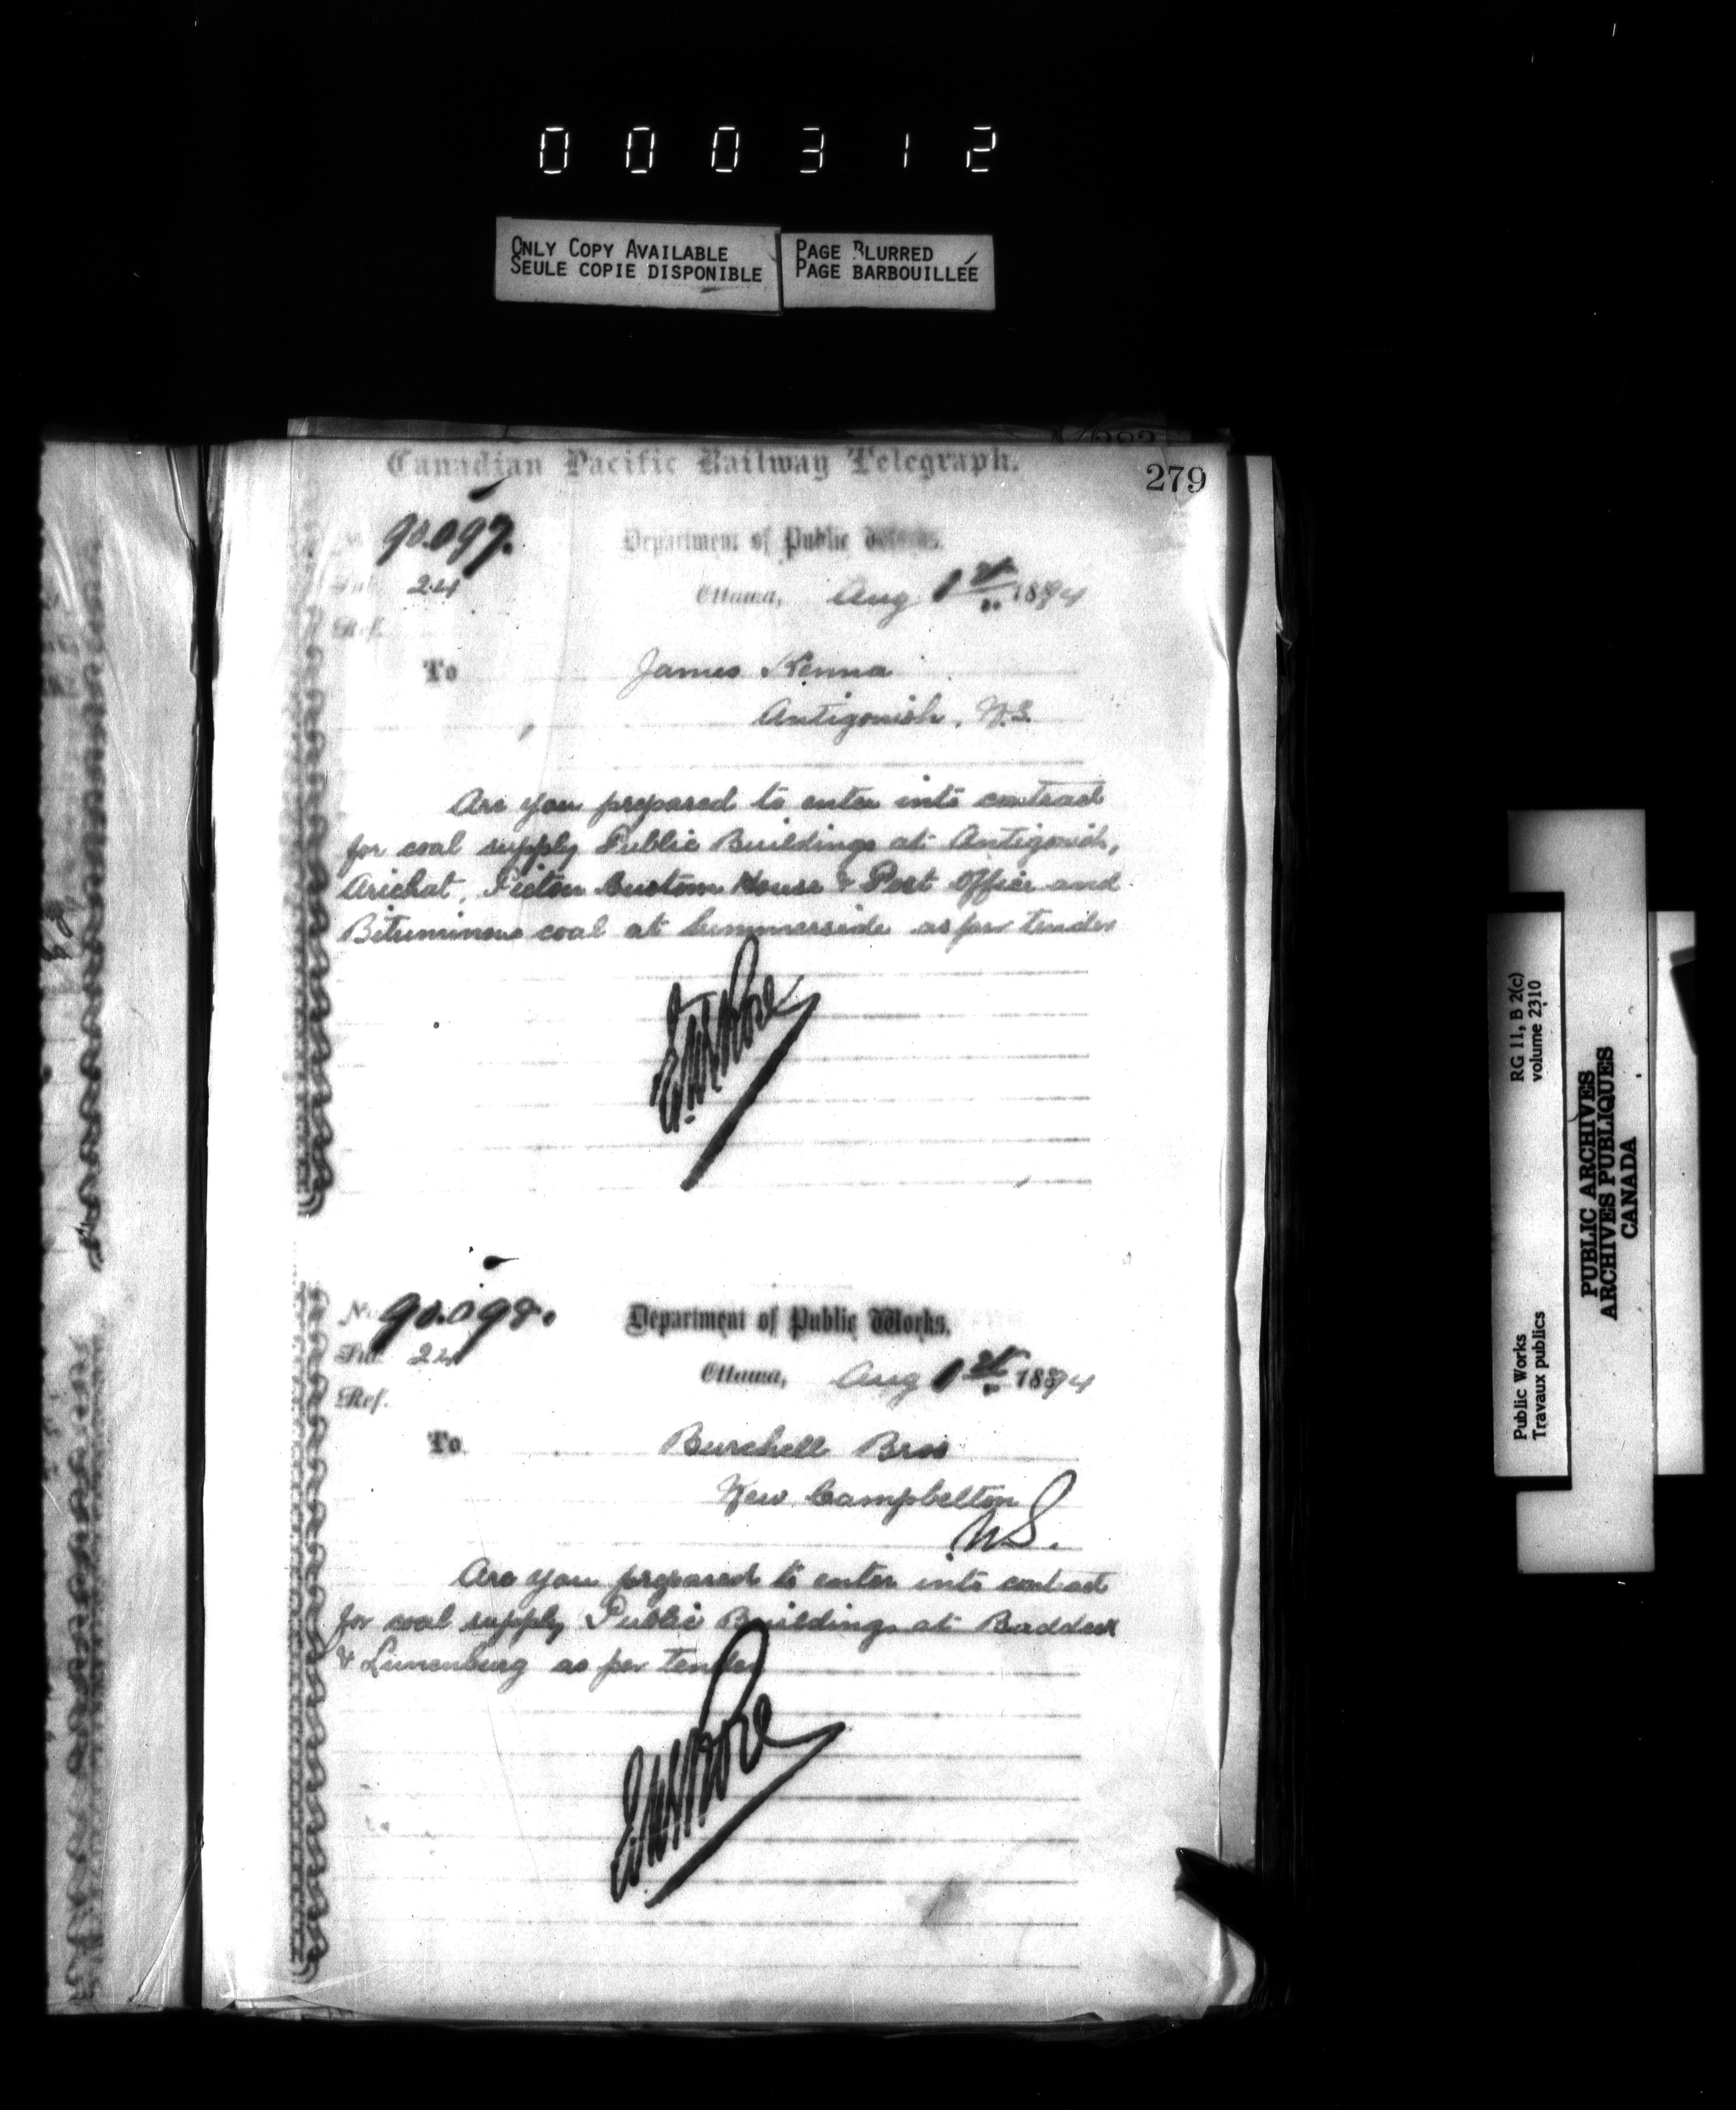 000312
ONLY COPY AVAILABLE
SEULE COPIE DISPONIBLE
PAGE BLURRED
PAGE BARBOUILLÉE
Canadian Pacific Railway Telegraph.
279
90.097.
Department of Public Works.
Sub. 24
Ottawa, Aug 1st 1894
Ref.
To James Kenna
Antigonish, N.S.
Are you prepared to enter into contract
for coal supply Public Buildings at Antigonish,
Arichat, Pictou Custom House & Post Office and
Bituminous coal at Summerside as per tender
E.F.E. Roy
No. 90.098.
Department of Public Works.
Sub. 24
Ottawa, Aug 1st 1894
Ref.
To Burchell Bros
New Campbelton
N.S.
Are you prepared to enter into contract
for coal supply Public Buildings at Baddeck
& Lunenburg as per tender
E.F.E. Roy
RG 11, B 2(c)
volume 2310
Public Works
Travaux publics
PUBLIC ARCHIVES
ARCHIVES PUBLIQUES
CANADA